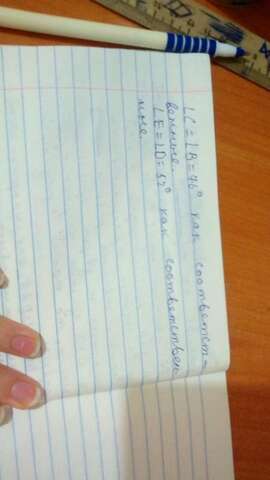 ∠C = ∠B = 46° как соответст-
венные.
∠E = ∠D = 52° как соответствен
ные.